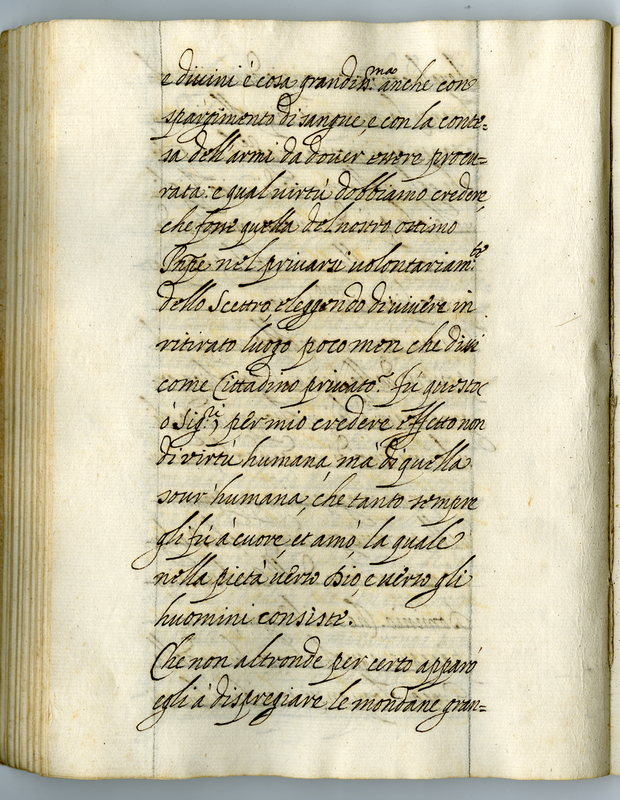 e diuini è cosa grandiss.ma anche con
spargimento di sangue, e con la conte=
sa dell'armi da douer essere procu=
rata: e qual uirtù dobbiamo credere,
che fosse quella del nostro ottimo
Pnpe nel priuarsi uolontariam.te
dello Scettro, eleggendo di uiuere in
ritirato luogo poco men che diui
come Cittadino priuato? Fù questo
ò Sig.ri per mio credere effetto non
di uirtù humana, mà di quella
sour' humana, che tanto sempre
gli fù à cuore, et amò, la quale
nella pietà uerso Dio, e uerso gli
huomini consiste.
Che non altronde per certo apparò
egli à dispregiare le mondane gran=